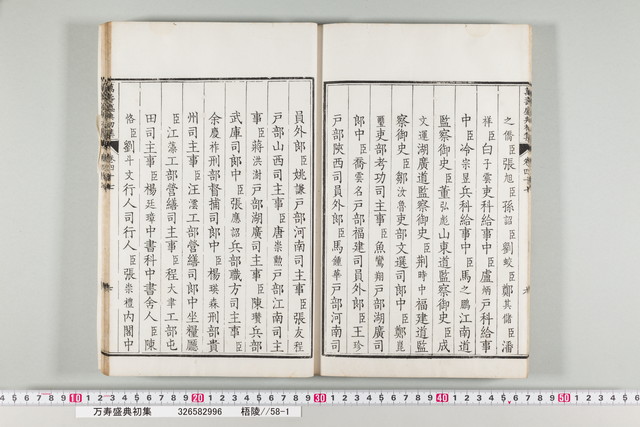 之儒臣張旭臣孫詔臣劉蛟臣鄭其儲臣潘
祥臣白子雲吏科給事中臣盧炳戶科給事
中臣冷宗昱兵科給事中臣馬之鵬江南道
監察御史臣董弘彪山東道監察御史臣成
文運湖廣道監察御史臣荆時中福建道監
察御史臣鄒汝魯吏部文選司郎中臣鄭崑
璽吏部考功司主事臣魚鸞翔戶部湖廣司
郎中臣喬雲名戶部福建司員外郎臣王珍
戶部陝西司員外郎臣馬鍾華戶部河南司
員外郎臣姚謙戶部河南司主事臣張友程
戶部山西司主事臣唐崇勳戶部江南司主
事臣蔣洪澍戶部湖廣司主事臣陳瓚兵部
武庫司郎中臣張應詔兵部職方司主事臣
余慶祚刑部督捕司郎中臣楊瑛森刑部貴
州司主事臣汪澐工部營繕司郎中坐糧廳
臣江蘩工部營繕司主事臣程大聿工部屯
田司主事臣楊廷璋中書科中書舍人臣陳
恪臣劉斗文行人司行人臣張崇禮內閣中
万寿盛典初集 326582996 梧陵//58-1